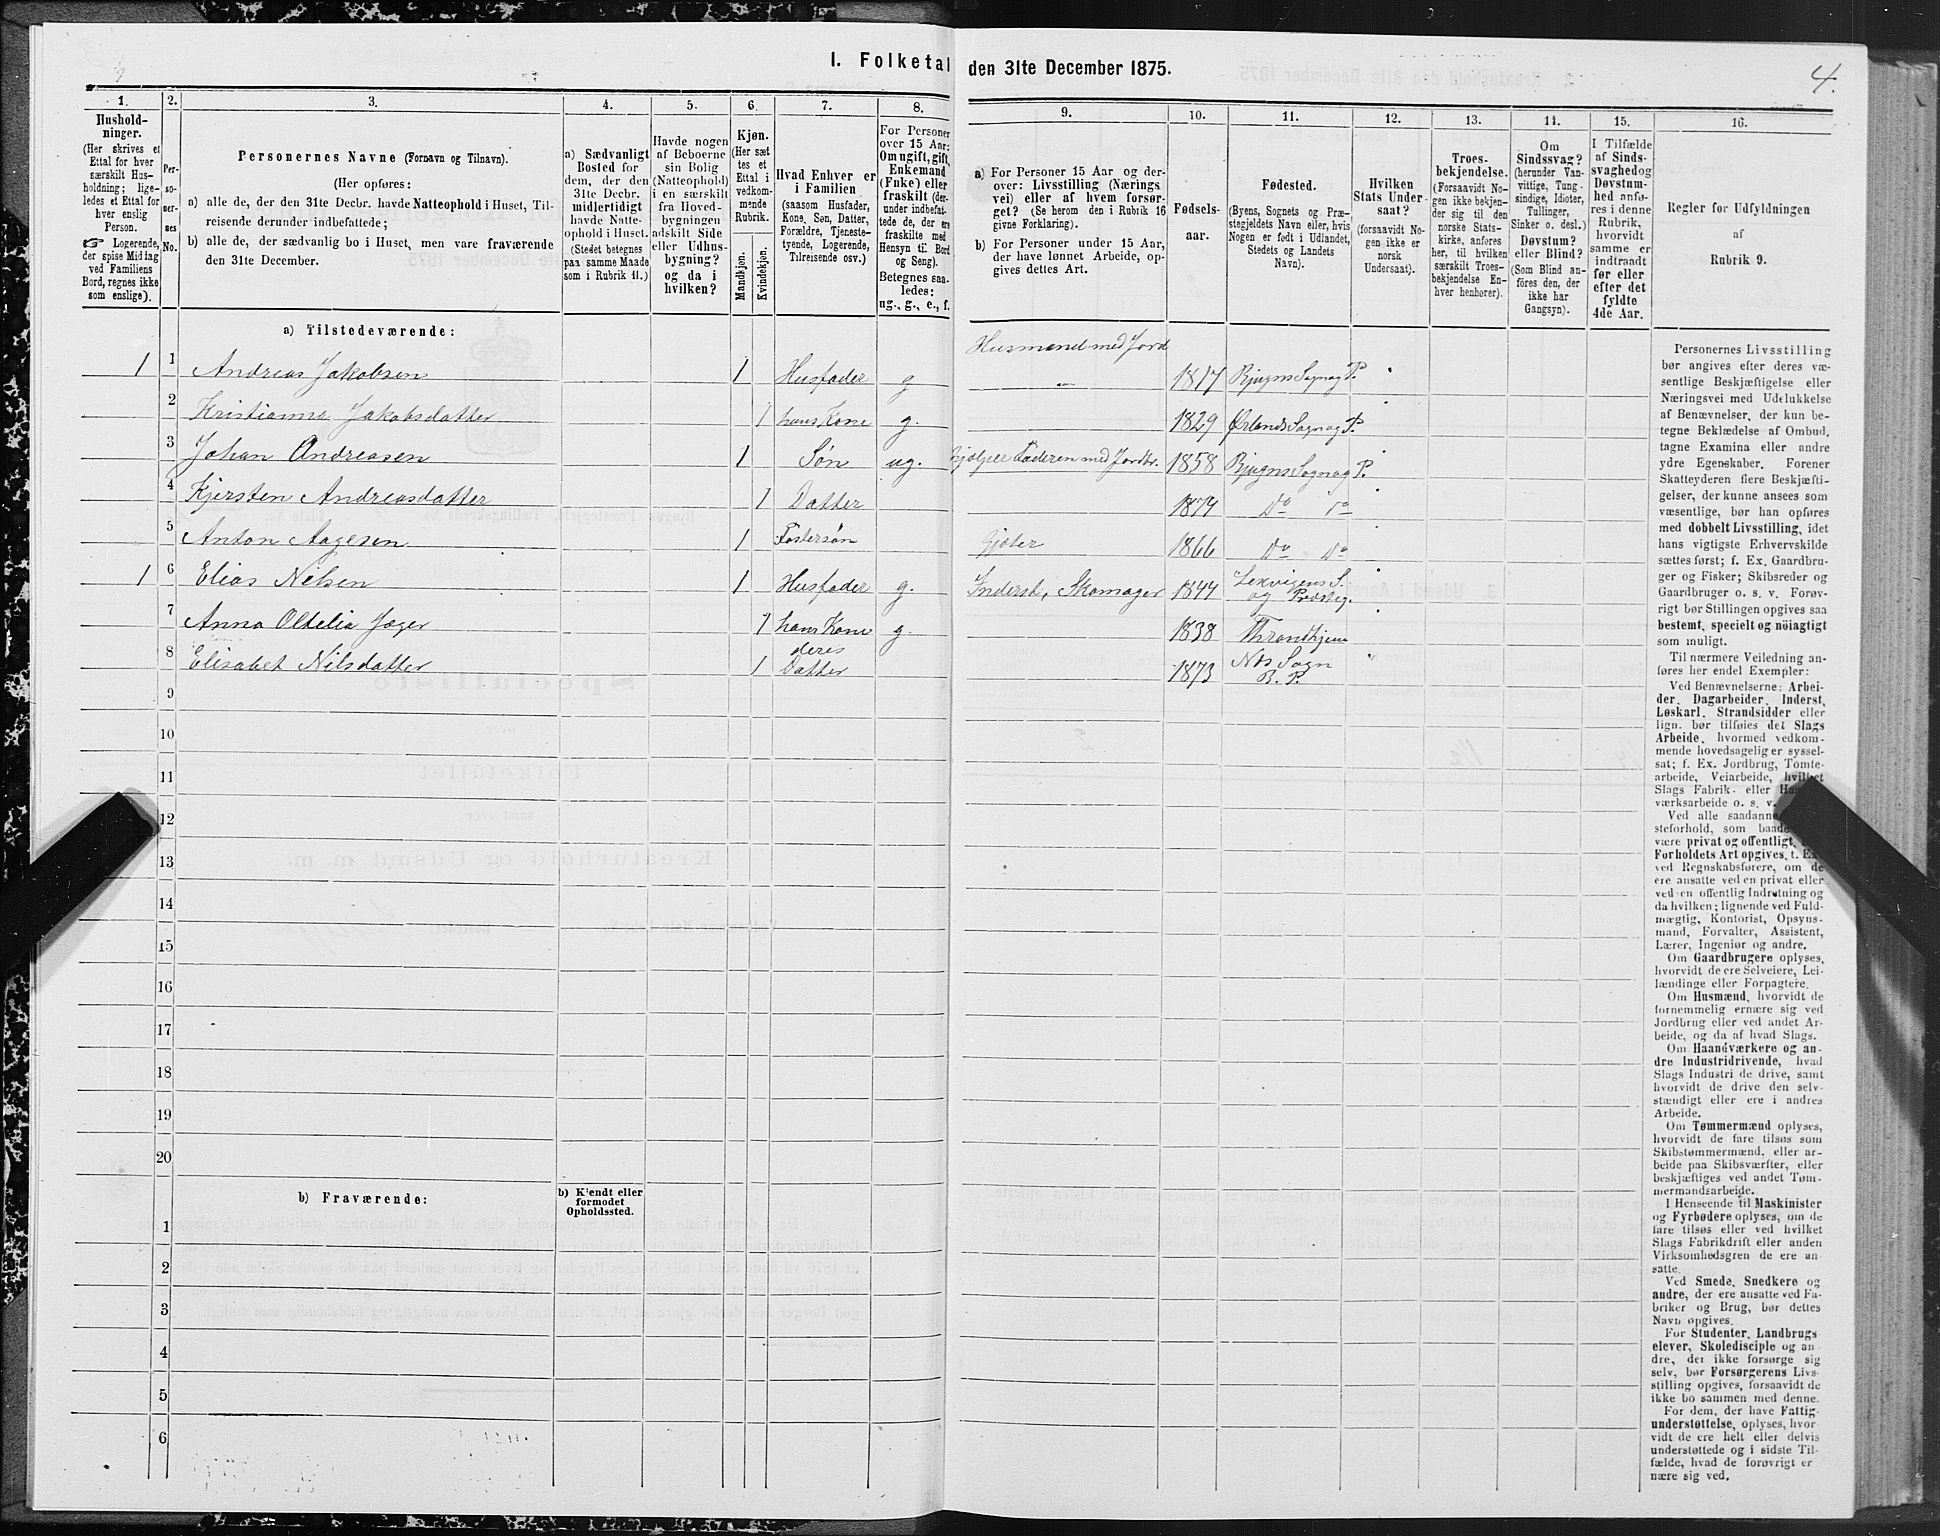 I. Folketal den 31te December 1875.
4.
1.
2.
3.
4.
5.
6.
7.
8.
9.
10.
11.
12.
13.
14.
15.
16.
Hushold-
ninger.
(Her skrives et
Ettal for hver
særskilt Hus-
holdning; lige-
ledes et Ettal for
hver enslig
Person.
☞ Logerende,
der spise Middag
ved Familiens
Bord, regnes ikke
som enslige).
Per-
so-
ner-
nes
No.
Personernes Navne (Fornavn og Tilnavn).
(Her opføres:
a) alle de, der den 31te Decbr. havde Natteophold i Huset, Til-
reisende derunder indbefattede;
b) alle de, der sædvanlig bo i Huset, men vare fraværende
den 31te December.
a) Sædvanligt
Bosted for
dem, der den
31te Decbr.
midlertidigt
havde Natte-
ophold i Huset.
(Stedet betegnes
paa samme Maade
som i Rubrik 11.)
Havde nogen
af Beboerne
sin Bolig
(Natteophold)
i en særskilt
fra Hoved-
bygningen
adskilt Side
eller Udhus-
bygning?
og da i
hvilken?
Kjøn.
(Her sæt
tes et
Ettal i
vedkom-
mende
Rubrik.
Mandkjøn.
Kvindekjøn.
Hvad Enhver er
i Familien
(saasom Husfader,
Kone, Søn, Datter,
Forældre, Tjeneste-
tyende, Logerende,
Tilreisende osv.)
For Personer
over 15 Aar:
Om ugift, gift,
Enkemand
(Enke) eller
fraskilt (der-
under indbefat-
tede de, der ere
fraskilte med
Hensyn til Bord
og Seng).
Betegnes saa-
ledes:
ug., g., e., f.
a) For Personer 15 Aar og der-
over: Livsstilling (Nærings-
vei) eller af hvem forsør-
get? (Se herom den i Rubrik 16
givne Forklaring).
b) For Personer under 15 Aar,
der have lønnet Arbeide, op-
gives dettes Art.
Fødsels-
aar.
Fødested.
(Byens, Sognets og Præ-
stegjeldets Navn eller, hvis
Nogen er født i Udlandet,
Stedets og Landets
Navn).
Hvilken
Stats Under-
saat?
(forsaavidt No-
gen ikke er
norsk
Undersaat).
Troes-
bekjendelse.
(Forsaavidt No-
gen ikke bekjen-
der sig til den
norske Stats-
kirke, anføres
her, til hvilken
særskilt Troes-
bekjendelse En-
hver henhører).
14.
Om
Sindssvag?
(herunder Van-
vittige, Tung-
sindige, Idioter,
Tullinger,
Sinker o. desl.)
Døvstum?
eller Blind?
(Som Blind an-
føres den, der
ikke har
Gangsyn).
I Tilfælde
af Sinds-
svaghed og
Døvstum-
hed anfø-
res i denne
Rubrik,
hvorvidt
samme er
indtraadt
før eller
efter det
fyldte
4de Aar.
Regler for Udfyldningen
af
Rubrik 9.
a) Tilstedeværende:
Husmand med Jord
1 1 Andreas Jakobsen 1 Husfader g „ 1817 Bjugns Sogn og P.
2 Kristianna Jakobsdatter 1 hans Kone g. 1829 Ørlands Sogn og P.
3 Johan Andreasen 1 Søn ug. hjælper Faderen med Jordbr. 1858 Bjugns Sogn og P.
4 Kjersten Andreasdatter 1 Datter 1874 Do Do
5 Anton Aagesen 1 Fostersøn Gjæter 1866 Do Do
1 6 Elias Nilsen 1 Husfader g. Inderst, Skomager 1844 Lexvigens S.
og Præsteg.
7 Anna Oldelia Jæger 1 hans Kone g. 1838 Throndhjem
8 Elisabet Nilsdatter 1 deres
Datter 1873 Næs Sogn
B. P.
9
10
11
12
13
14
15
16
17
18
19
20
b) Fraværende:
b) Kjendt eller
formodet
Opholdssted.
1
2
3
4
5
6
Personernes Livsstilling
bør angives efter deres væ-
sentlige Beskjæftigelse eller
Næringsvei med Udelukkelse
af Benævnelser, der kun be-
tegne Beklædelse af Ombud,
tagne Examina eller andre
ydre Egenskaber. Forener
Skatteyderen flere Beskjæfti-
gelser, der kunne ansees som
væsentlige, bør han opføres
med dobbelt Livsstilling, idet
hans vigtigste Erhvervskilde
sættes først; f. Ex. Gaardbru-
ger og Fisker; Skibsreder og
Gaardbruger o. s. v. Forøv-
rigt bør Stillingen opgives saa
bestemt, specielt og nöiagtigt
som muligt.
Til nærmere Veiledning an-
føres her endel Exempler:
Ved Benævnelserne: Arbei-
der, Dagarbeider, Inderst,
Løskarl, Strandsidder eller
lign. bør tilføies det Slags
Arbeide, hvormed vedkom-
mende hovedsagelig er syssel-
sat; f. Ex. Jordbrug, Tomte-
arbeide, Veiarbeide, hvilket
Slags Fabrik- eller
værksarbeide o. s. v.
Ved alle saadanne
steforhold, som baade
være privat og offentligt,
Forholdets Art opgives, t. Ex.
ved Regnskabsførere, om de
ere ansatte ved en privat eller
ved en offentlig Indretning og
da hvilken; lignende ved Fuld-
mægtig, Kontorist, Opsyns-
mand, Forvalter, Assistent,
Lærer, Ingeniør og andre.
Om Gaardbrugere oplyses,
hvorvidt de ere Selveiere, Lei-
lændinge eller Forpagtere.
Om Husmænd, hvorvidt de
fornemmelig ernære sig ved
Jordbrug eller ved andet Ar-
beide, og da af hvad Slags.
Om Haandværkere og an-
dre Industridrivende, hvad
Slags Industri de drive, samt
hvorvidt de drive den selv-
stændigt eller ere i andres
Arbeide.
Om Tømmermænd oplyses,
hvorvidt de fare tilsøs som
Skibstømmermænd, eller ar-
beide paa Skibsværfter, eller
beskjæftiges ved andet Tøm-
mermandsarbeide.
I Henseende til Maskinister
og Fyrbødere oplyses, om de
fare tilsøs eller ved hvilket
Slags Fabrikdrift eller anden
Virksomhedsgren de ere an-
satte.
Ved Smede, Snedkere og
andre, der ere ansatte ved Fa-
briker og Brug, bør dettes
Navn opgives.
For Studenter, Landbrugs
elever, Skoledisciple og an-
dre, der ikke forsørge sig
selv, bør Forsørgerens Livs-
stilling opgives, forsaavidt de
ikke bo sammen med denne.
For dem, der have Fattig-
understøttelse, oplyses, hvor-
vidt de ere helt eller delvis
understøttede og i sidste Til-
fælde, hvad de forøvrigt er
nære sig ved.